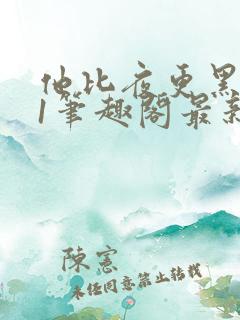 他比夜更黑
/笔趣阁最新
陳憲
未经同意禁止转载